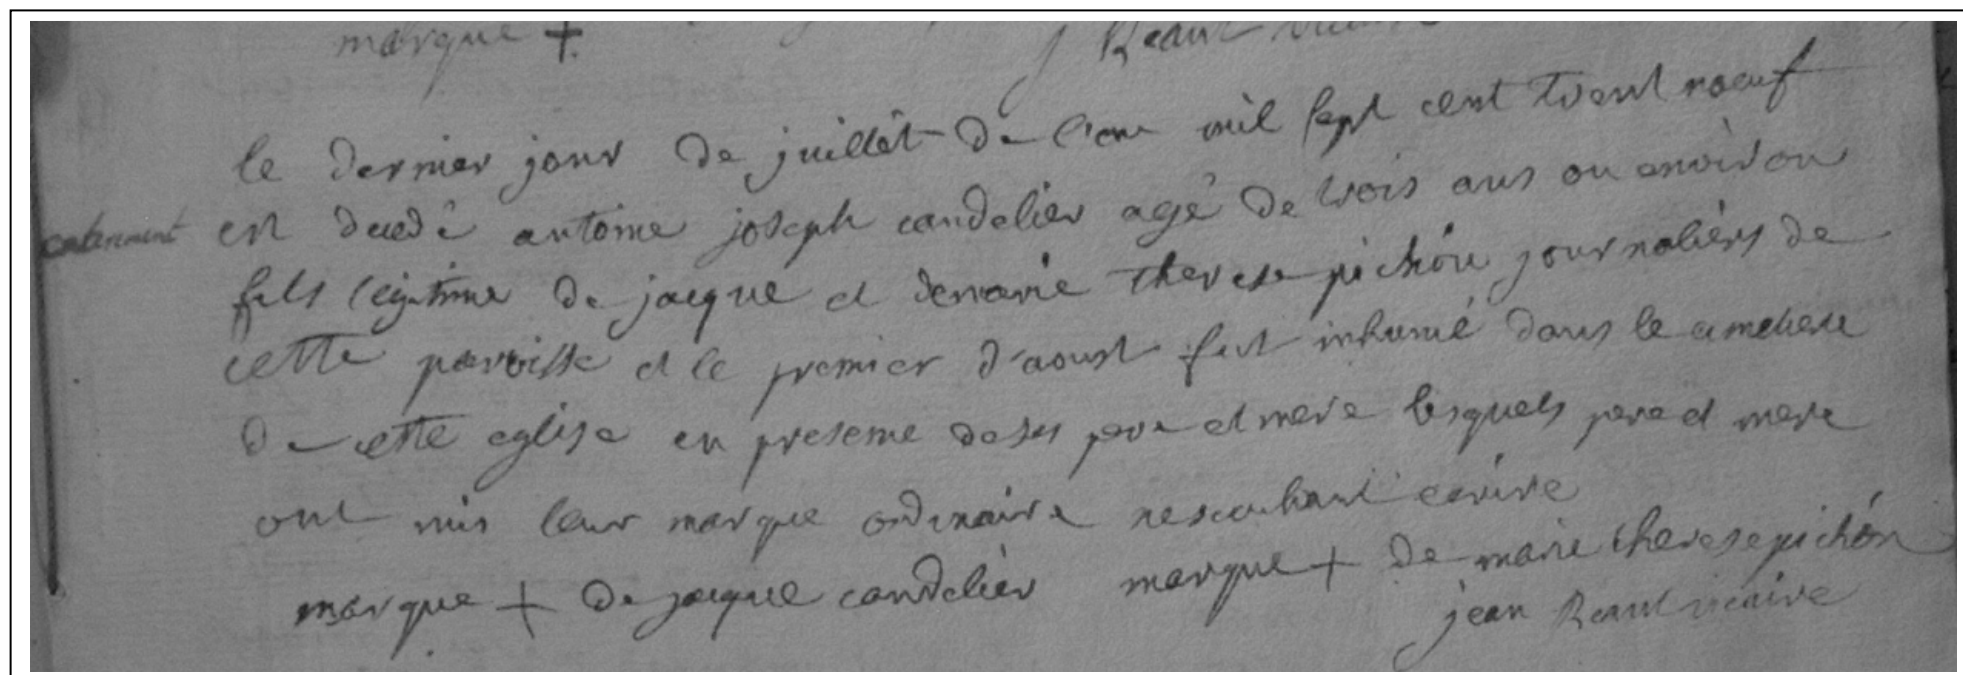 marque +
le dernier jour de juillet de l'an mil sept cent trent noeuf
enterrement
est decedé antoine joseph candelier agé de trois ans ou environ
fils legitime de jacque et de marie therese pichon journaliers de
cette paroisse et le premier d'aoust fut inhumé dans le cimetiere
de cette eglise en presence de ses pere et mere lesquels pere et mere
ont mis leur marque ordinaire ne scachant ecrire
marque + de jacque candelier marque + de marie therese pichon
jean vicaire